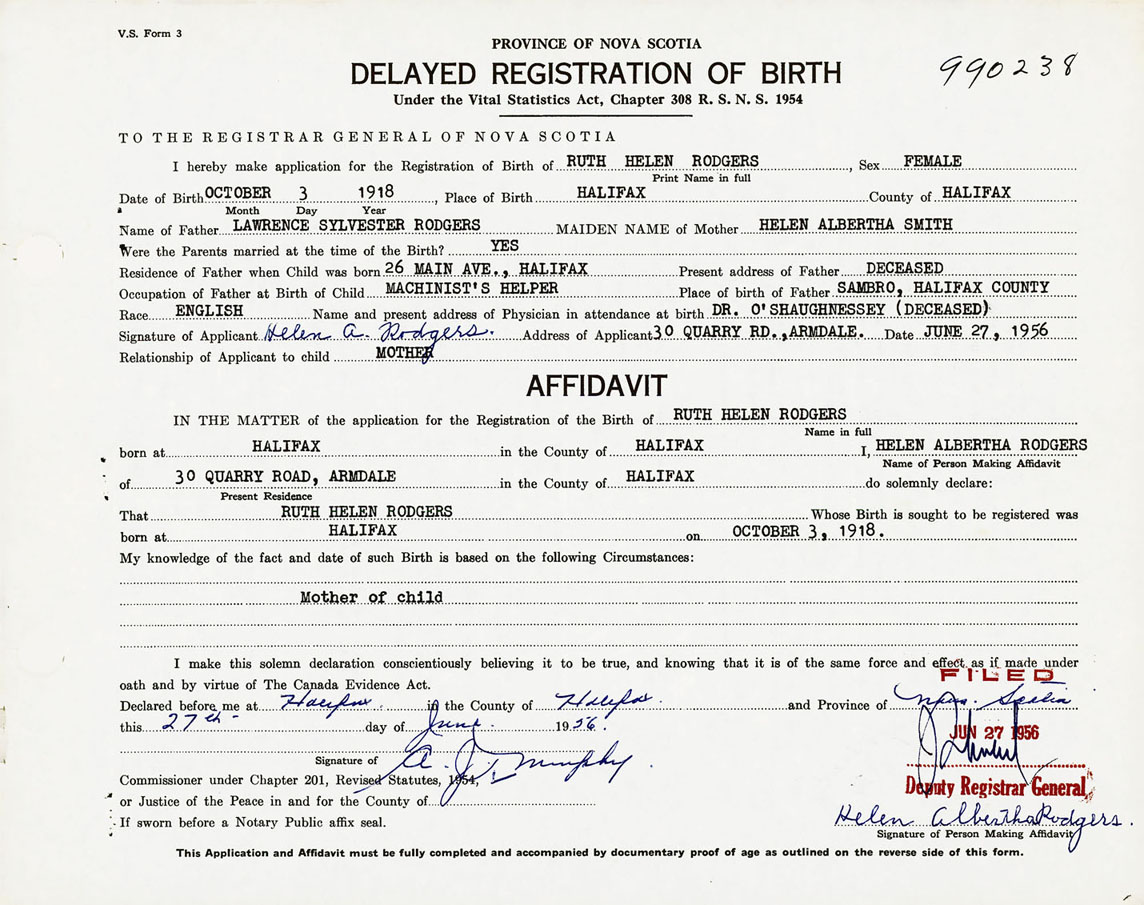 V.S. Form 3
PROVINCE OF NOVA SCOTIA
DELAYED REGISTRATION OF BIRTH
990238
Under the Vital Statistics Act, Chapter 308 R. S. N. S. 1954
TO THE REGISTRAR GENERAL OF NOVA SCOTIA
I hereby make application for the Registration of Birth of RUTH HELEN RODGERS, Sex FEMALE
Print Name in full
Date of Birth OCTOBER 3 1918, Place of Birth HALIFAX County of HALIFAX
Month Day Year
Name of Father LAWRENCE SYLVESTER RODGERS MAIDEN NAME of Mother HELEN ALBERTHA SMITH
Were the Parents married at the time of the Birth? YES
Residence of Father when Child was born 26 MAIN AVE., HALIFAX Present address of Father DECEASED
Occupation of Father at Birth of Child MACHINIST'S HELPER Place of birth of Father SAMBRO, HALIFAX COUNTY
Race ENGLISH Name and present address of Physician in attendance at birth DR. O'SHAUGHNESSEY (DECEASED)
Signature of Applicant Helen A. Rodgers. Address of Applicant 30 QUARRY RD., ARMDALE. Date JUNE 27, 1956
Relationship of Applicant to child MOTHER
AFFIDAVIT
IN THE MATTER of the application for the Registration of the Birth of RUTH HELEN RODGERS
Name in full
born at HALIFAX in the County of HALIFAX I, HELEN ALBERTHA RODGERS
Name of Person Making Affidavit
of 30 QUARRY ROAD, ARMDALE in the County of HALIFAX do solemnly declare:
Present Residence
That RUTH HELEN RODGERS Whose Birth is sought to be registered was
born at HALIFAX on OCTOBER 3, 1918.
My knowledge of the fact and date of such Birth is based on the following Circumstances:
Mother of child
I make this solemn declaration conscientiously believing it to be true, and knowing that it is of the same force and effect as if made under
oath and by virtue of The Canada Evidence Act.
FILED
Declared before me at Halifax in the County of Halifax and Province of Nova Scotia
this 27th day of June 1956.
JUN 27 1956
Signature of A. J. Murphy.
Commissioner under Chapter 201, Revised Statutes, 1954,
Deputy Registrar General
or Justice of the Peace in and for the County of
If sworn before a Notary Public affix seal.
Helen Albertha Rodgers.
Signature of Person Making Affidavit
This Application and Affidavit must be fully completed and accompanied by documentary proof of age as outlined on the reverse side of this form.